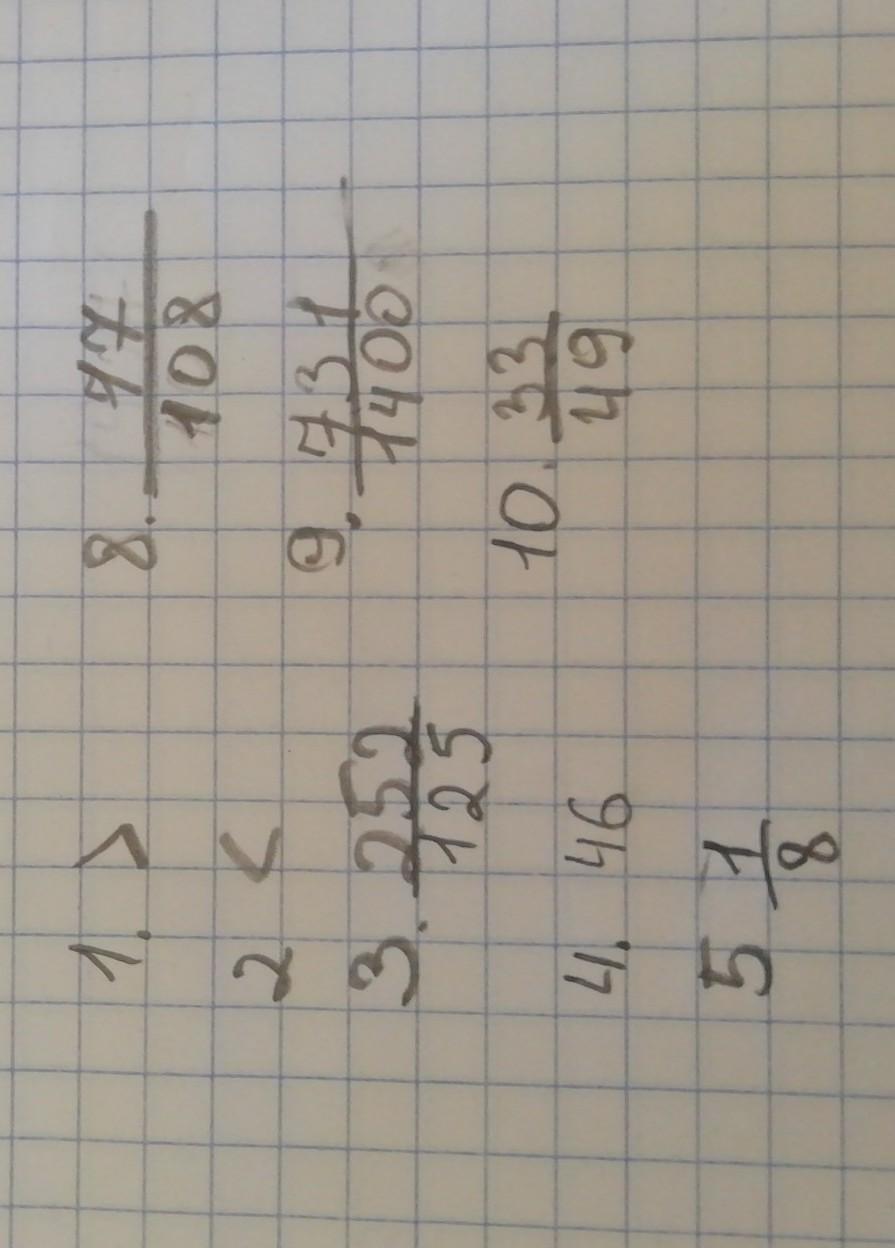 1. >
2 <
3. 252/125
4. 46
5 1/8
8. 77/108
9. 731/1400
10. 33/49